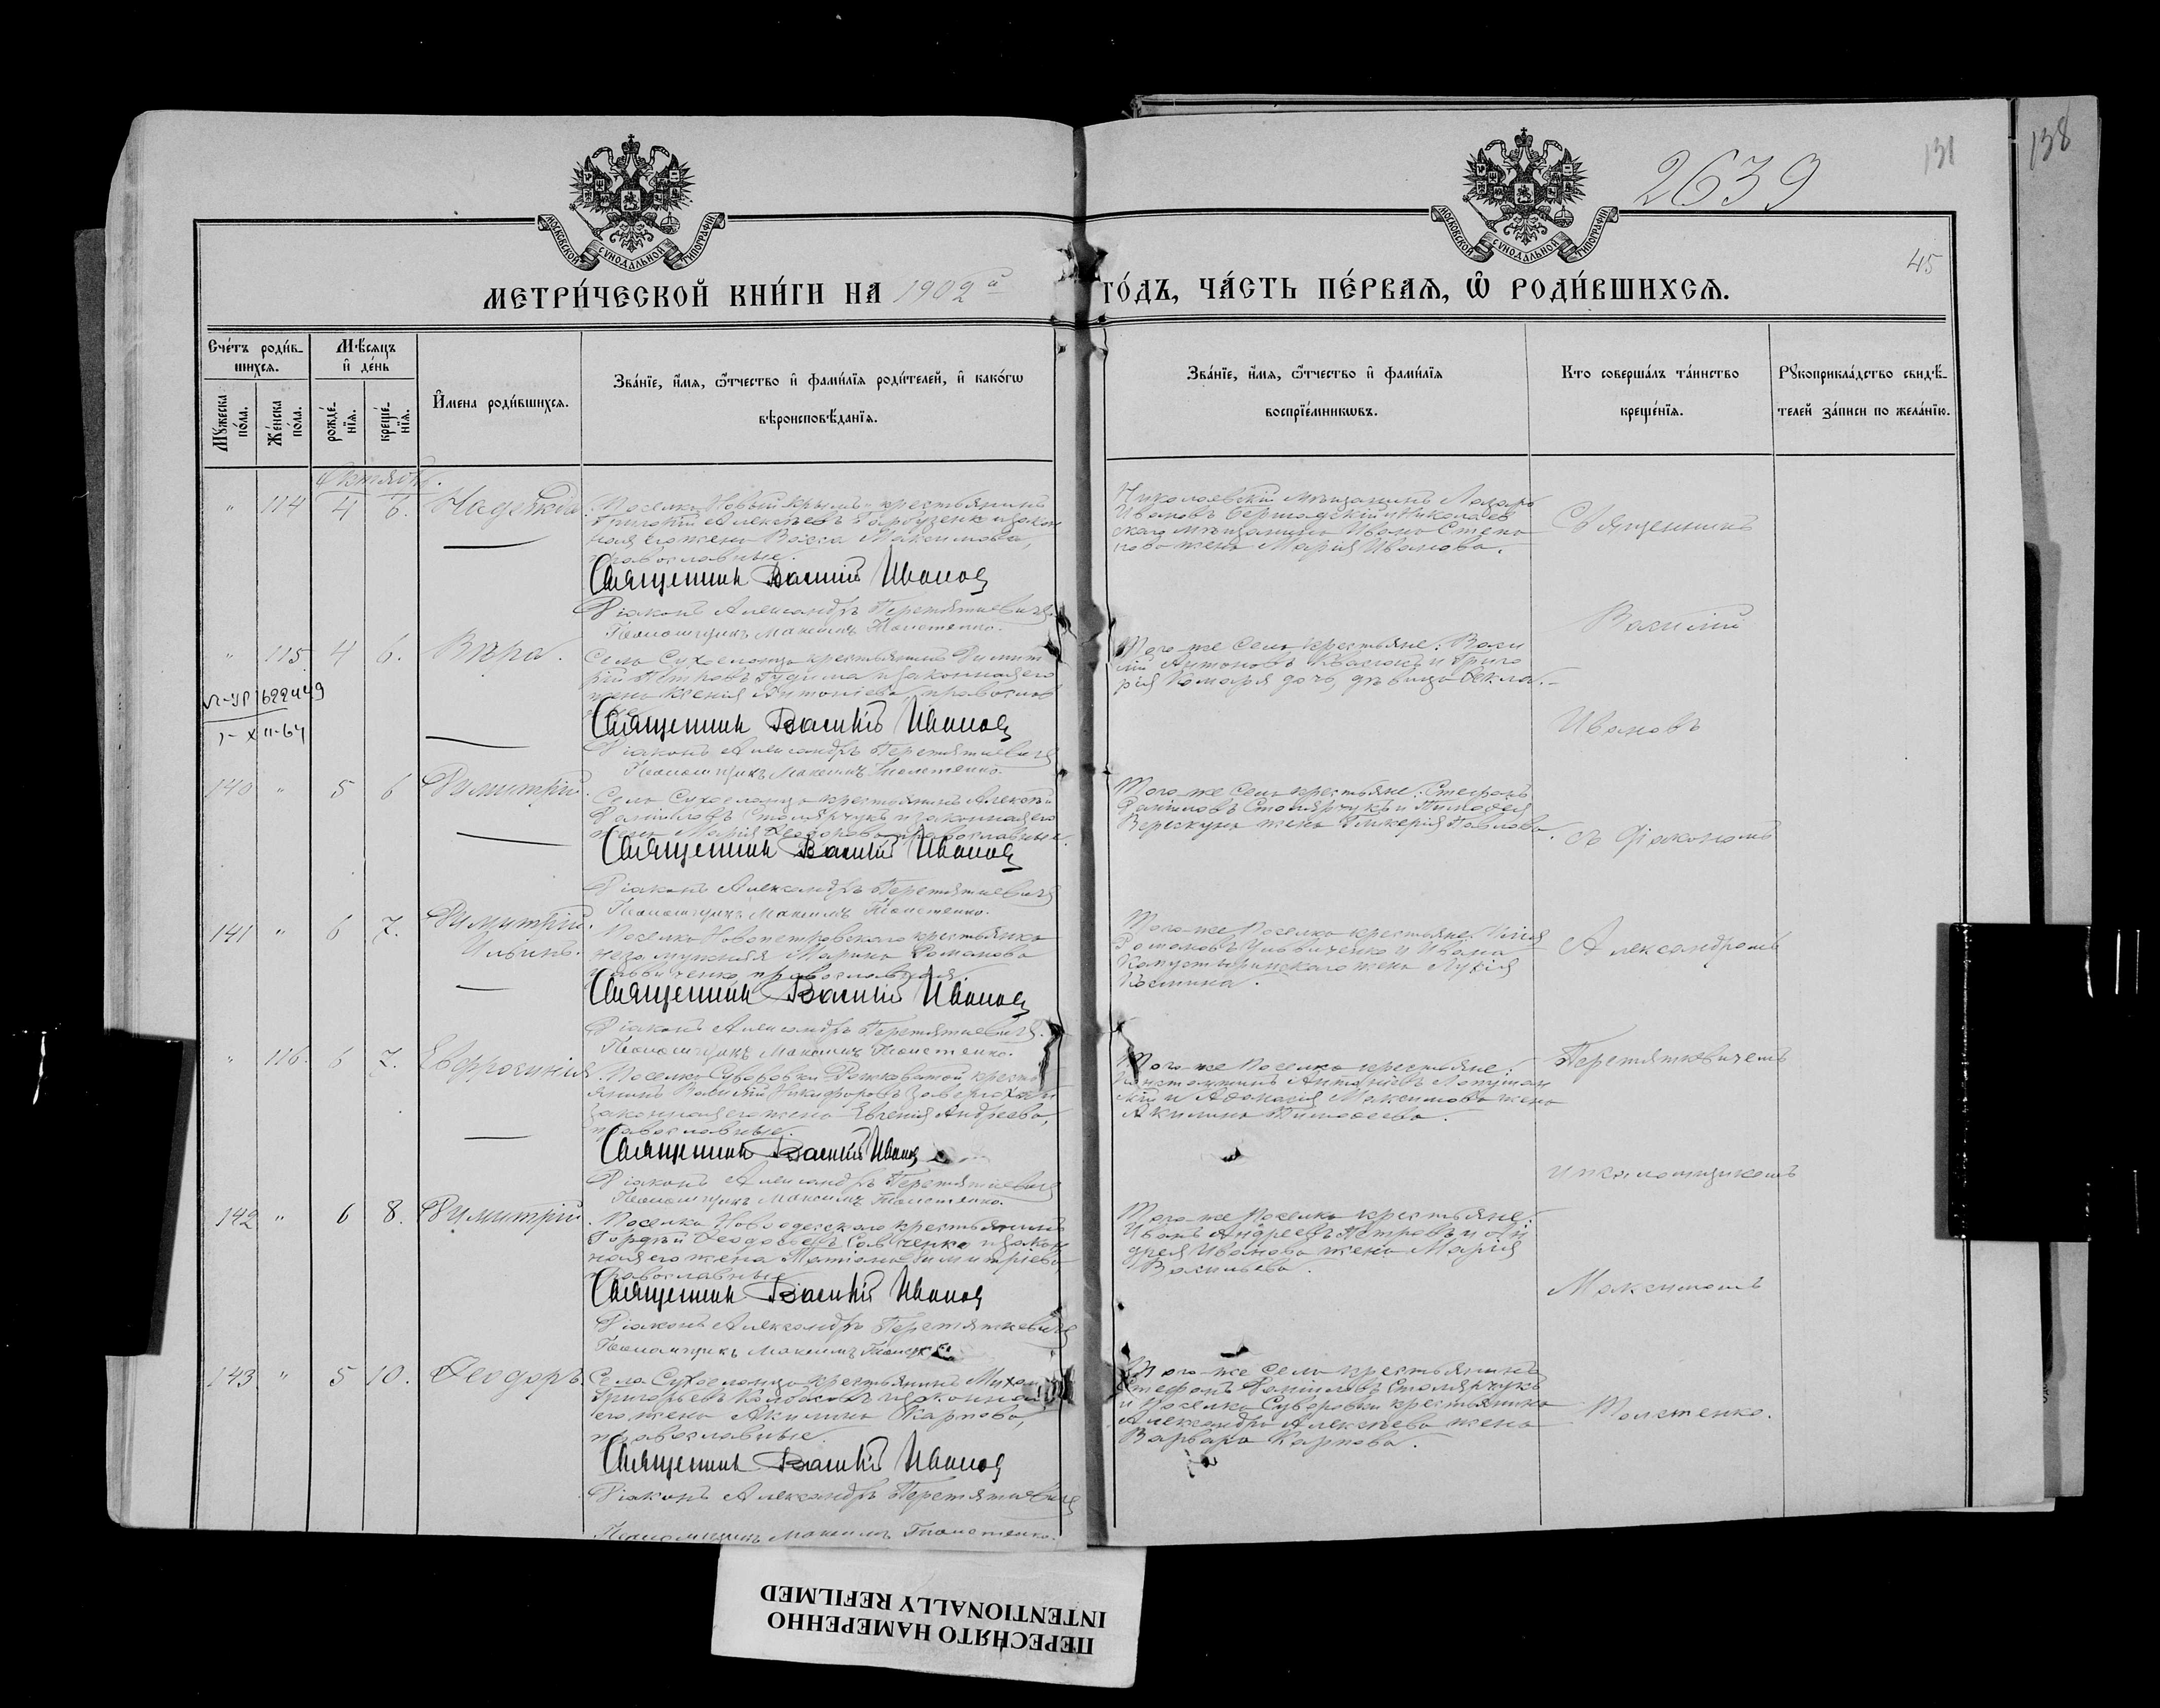 138
131
2639
45
МОСКОВСКОЙ СѴНОДАЛЬНОЙ ТИПОГРАФІИ
МОСКОВСКОЙ СѴНОДАЛЬНОЙ ТИПОГРАФІИ
МЕТРИ́ЧЕСКОЙ КНИ́ГИ НА 1902й ГО́ДЪ, ЧА́СТЬ ПЕ́РВАѦ, Ѡ҆ РОДИ́ВШИХСѦ.
Сче́тъ роди́в-
шихсѧ.
Мѣ́сѧцъ
и҆ де́нь
Мꙋ́жеска по́ла.
Же́нска по́ла.
рожде́-нїѧ.
креще́-нїѧ.
И҆мена роди́вшихсѧ.
Зва́нїе, и҆́мѧ, ѻ҆́тчество и҆ фами́лїѧ роди́телей, и҆ како́гѡ
вѣроисповѣ́данїѧ.
Зва́нїе, и҆́мѧ, ѻ҆́тчество и҆ фами́лїѧ
воспрїе́мникѡвъ.
Кто соверша́лъ та́инство
креще́нїѧ.
Рꙋкоприкла́дство свидѣ́-
телей за́писи по жела́нїю.
Октябрь.
" 114 4 6. Надежда
Поселка Новый Крымъ крестьянинъ
Григорій Алексѣевъ Гарбузенко и закон
ная его жена Васса Максимова,
православные.
Священник Василий Иванов
Діаконъ Александръ Перетяткевичъ
Псаломщикъ Максимъ
Николаевскій мѣщанинъ Лазарь
Ивановъ Бершадскій и Николаев
скаго мѣщанина Ивана Степа
нова жена Марія Иванова.
Священникъ
Василій
" 115 4 6. Вѣра.
Села Сухоеланца крестьянинъ Димит
рій Петровъ Гудима и законная его
жена Ксенія Антоніева, православ
ные
Священник Василий Иванов
Діаконъ Александръ Перетяткевичъ
Псаломщикъ Максимъ
Того же Села крестьяне: Васи
лій Антоновъ Квасюкъ и Григо
рія Комаря дочь, дѣвица Фекла.
Ивановъ
622449
140 " 5 6 Димитрій
Села Сухоеланца крестьянинъ Алексѣй
Даніиловъ Столярчукъ и законная его
жена Марія Ѳеодорова, православные.
Священник Василий Иванов
Діаконъ Александръ Перетяткевичъ
Псаломщикъ Максимъ
Того же Села крестьяне: Стефанъ
Даніиловъ Столярчукъ и Тимоѳея
Верескуна жена Гликерія Павлова.
съ Діакономъ
141 " 6 7. Димитрій.
Ильинъ.
Поселка Новопетровскаго крестьянка
незамужняя Марина Романова
православная.
Священник Василий Иванов
Діаконъ Александръ Перетяткевичъ
Псаломщикъ Максимъ
Того же Поселка крестьяне: Илія
Романовъ и Ивана
жена Лукія
Козмина.
Александромъ
" 116. 6 7. Евфросинія
Поселка Суворовки крестья
янинъ Василій Никифоровъ и
законная его жена Евгенія Андреева,
православные.
Священник Василий Иванов
Діаконъ Александръ Перетяткевичъ
Псаломщикъ Максимъ
Того же Поселка крестьяне:
Константинъ Антоніевъ Лопушан
скій и Аѳанасія Максимова жена
Акилина Тимоѳеева.
Перетяткевичемъ
и псаломщикомъ
142 " 6 8. Димитрій
Поселка Новоодесскаго крестьянинъ
Гордѣй Ѳеодосьевъ Савченко и закон
ная его жена Татіана Димитріева
православные
Священник Василий Иванов
Діаконъ Александръ Перетяткевичъ
Псаломщикъ Максимъ
Того же Поселка крестьяне:
Иванъ Андреевъ Петровъ и Ан
дрея Иванова жена Марія
Васильева.
Максимомъ
143 " 5 10. Ѳеодоръ.
Села Сухоеланца крестьянинъ Михаилъ
Григорьевъ и законная
его жена Акилина Карпова,
православные.
Священник Василий Иванов
Діаконъ Александръ Перетяткевичъ
Псаломщикъ Максимъ
Того же Села крестьянинъ
Стефанъ Даніиловъ Столярчукъ
и Поселка Суворовки крестьянина
Александра Алексѣева жена
Варвара Карпова.
ПЕРЕСНЯТО НАМЕРЕННО
INTENTIONALLY REFILMED